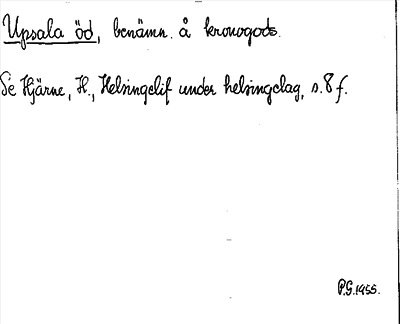 Upsala öd, benämn. å kronogods.
Se Hjärne, H., Helsingelif under helsingelag, s. 8 f.
P.G. 1955.